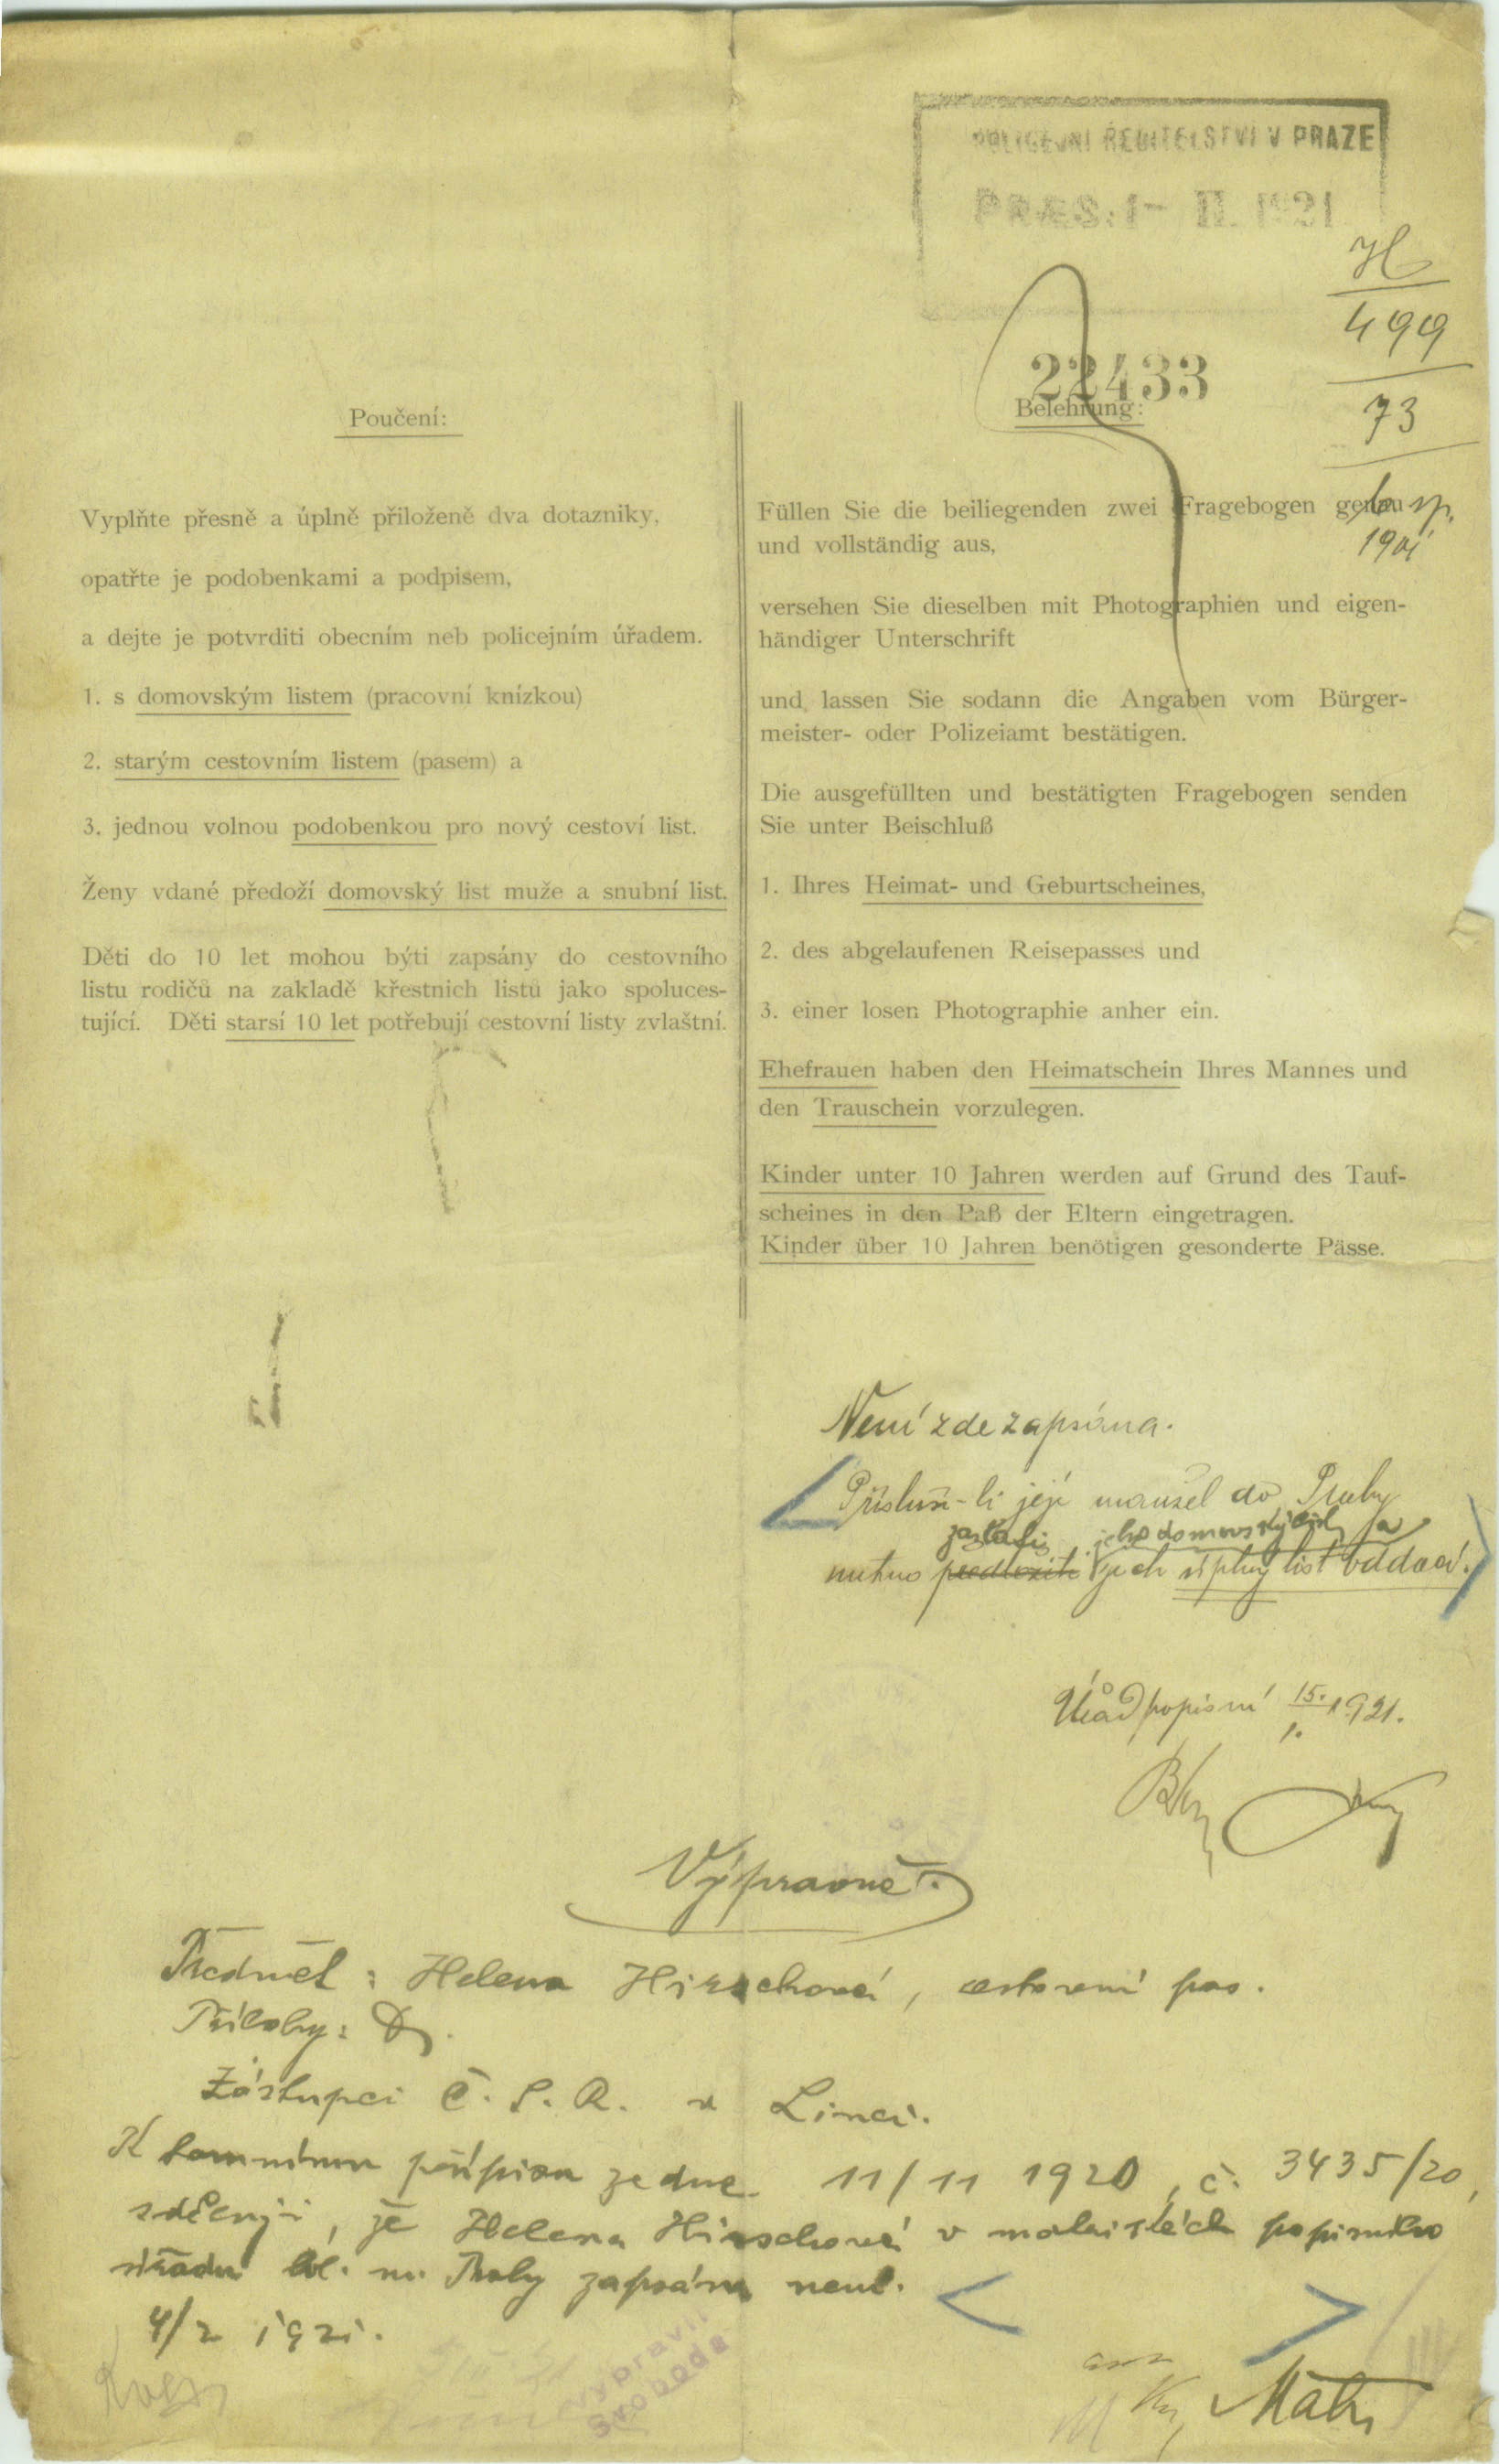 POLICEJNÍ ŘEDITELSTVÍ V PRAZE
PRÆS: 1- II. 1921
H
499
73
22433
Poučení:
Vyplňte přesně a úplně přiloženě dva dotazniky,
opatřte je podobenkami a podpisem,
a dejte je potvrditi obecním neb policejním úřadem.
1. s domovským listem (pracovní knízkou)
2. starým cestovním listem (pasem) a
3. jednou volnou podobenkou pro nový cestoví list.
Ženy vdané předoží domovský list muže a snubní list.
Děti do 10 let mohou býti zapsány do cestovního
listu rodičů na zakladě křestnich listů jako spoluces-
tující. Děti starsí 10 let potřebují cestovní listy zvlaštní.
Belehrung:
Füllen Sie die beiliegenden zwei Fragebogen genau
und vollständig aus,
versehen Sie dieselben mit Photographien und eigen-
händiger Unterschrift
und lassen Sie sodann die Angaben vom Bürger-
meister- oder Polizeiamt bestätigen.
Die ausgefüllten und bestätigten Fragebogen senden
Sie unter Beischluß
1. Ihres Heimat- und Geburtscheines,
2. des abgelaufenen Reisepasses und
3. einer losen Photographie anher ein.
Ehefrauen haben den Heimatschein Ihres Mannes und
den Trauschein vorzulegen.
Kinder unter 10 Jahren werden auf Grund des Tauf-
scheines in den Paß der Eltern eingetragen.
Kinder über 10 Jahren benötigen gesonderte Pässe.
Není zde zapsána.
Přísluší-li její manžel do Prahy
zaslati jeho domovský list a
nutno předložiti jich úplný list oddací.
Úřad popisní 15./1. 1921.
Výpravně.
Předmět: Helena Hirschová, cestovní pas.
Přílohy:
Zástupci Č. S. R. v Linci.
K tamnímu přípisu ze dne 11/11 1920, č. 3435/20,
sděluji, že Helena Hirschová v matrikách popisního
úřadu hl. m. Prahy zapsána není.
4/2 1921.
vypravil
Svoboda